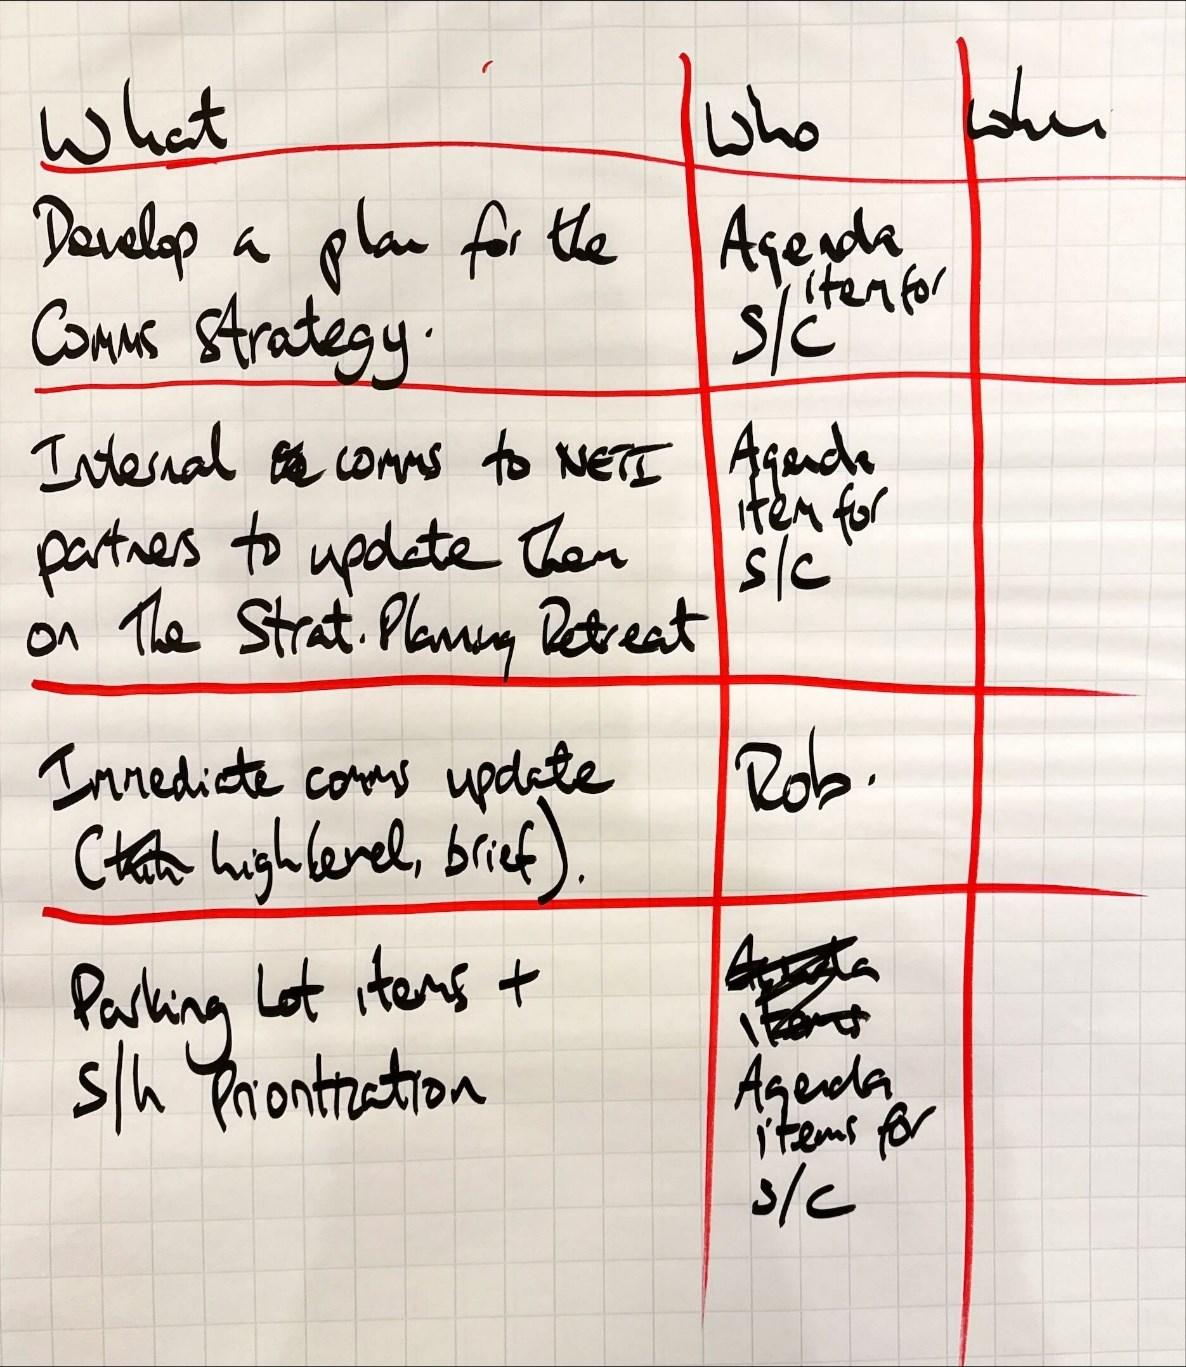 What Who When
Develop a plan for the
Comms strategy.
Agenda
item for
S/C
Internal comms to NETI
partners to update them
on The Strat. Planning Retreat
Agenda
item for
S/C
Immediate comms update
( high level, brief).
Rob.
Parking Lot items +
S/h Prioritization
Agenda
items
Agenda
items for
S/C